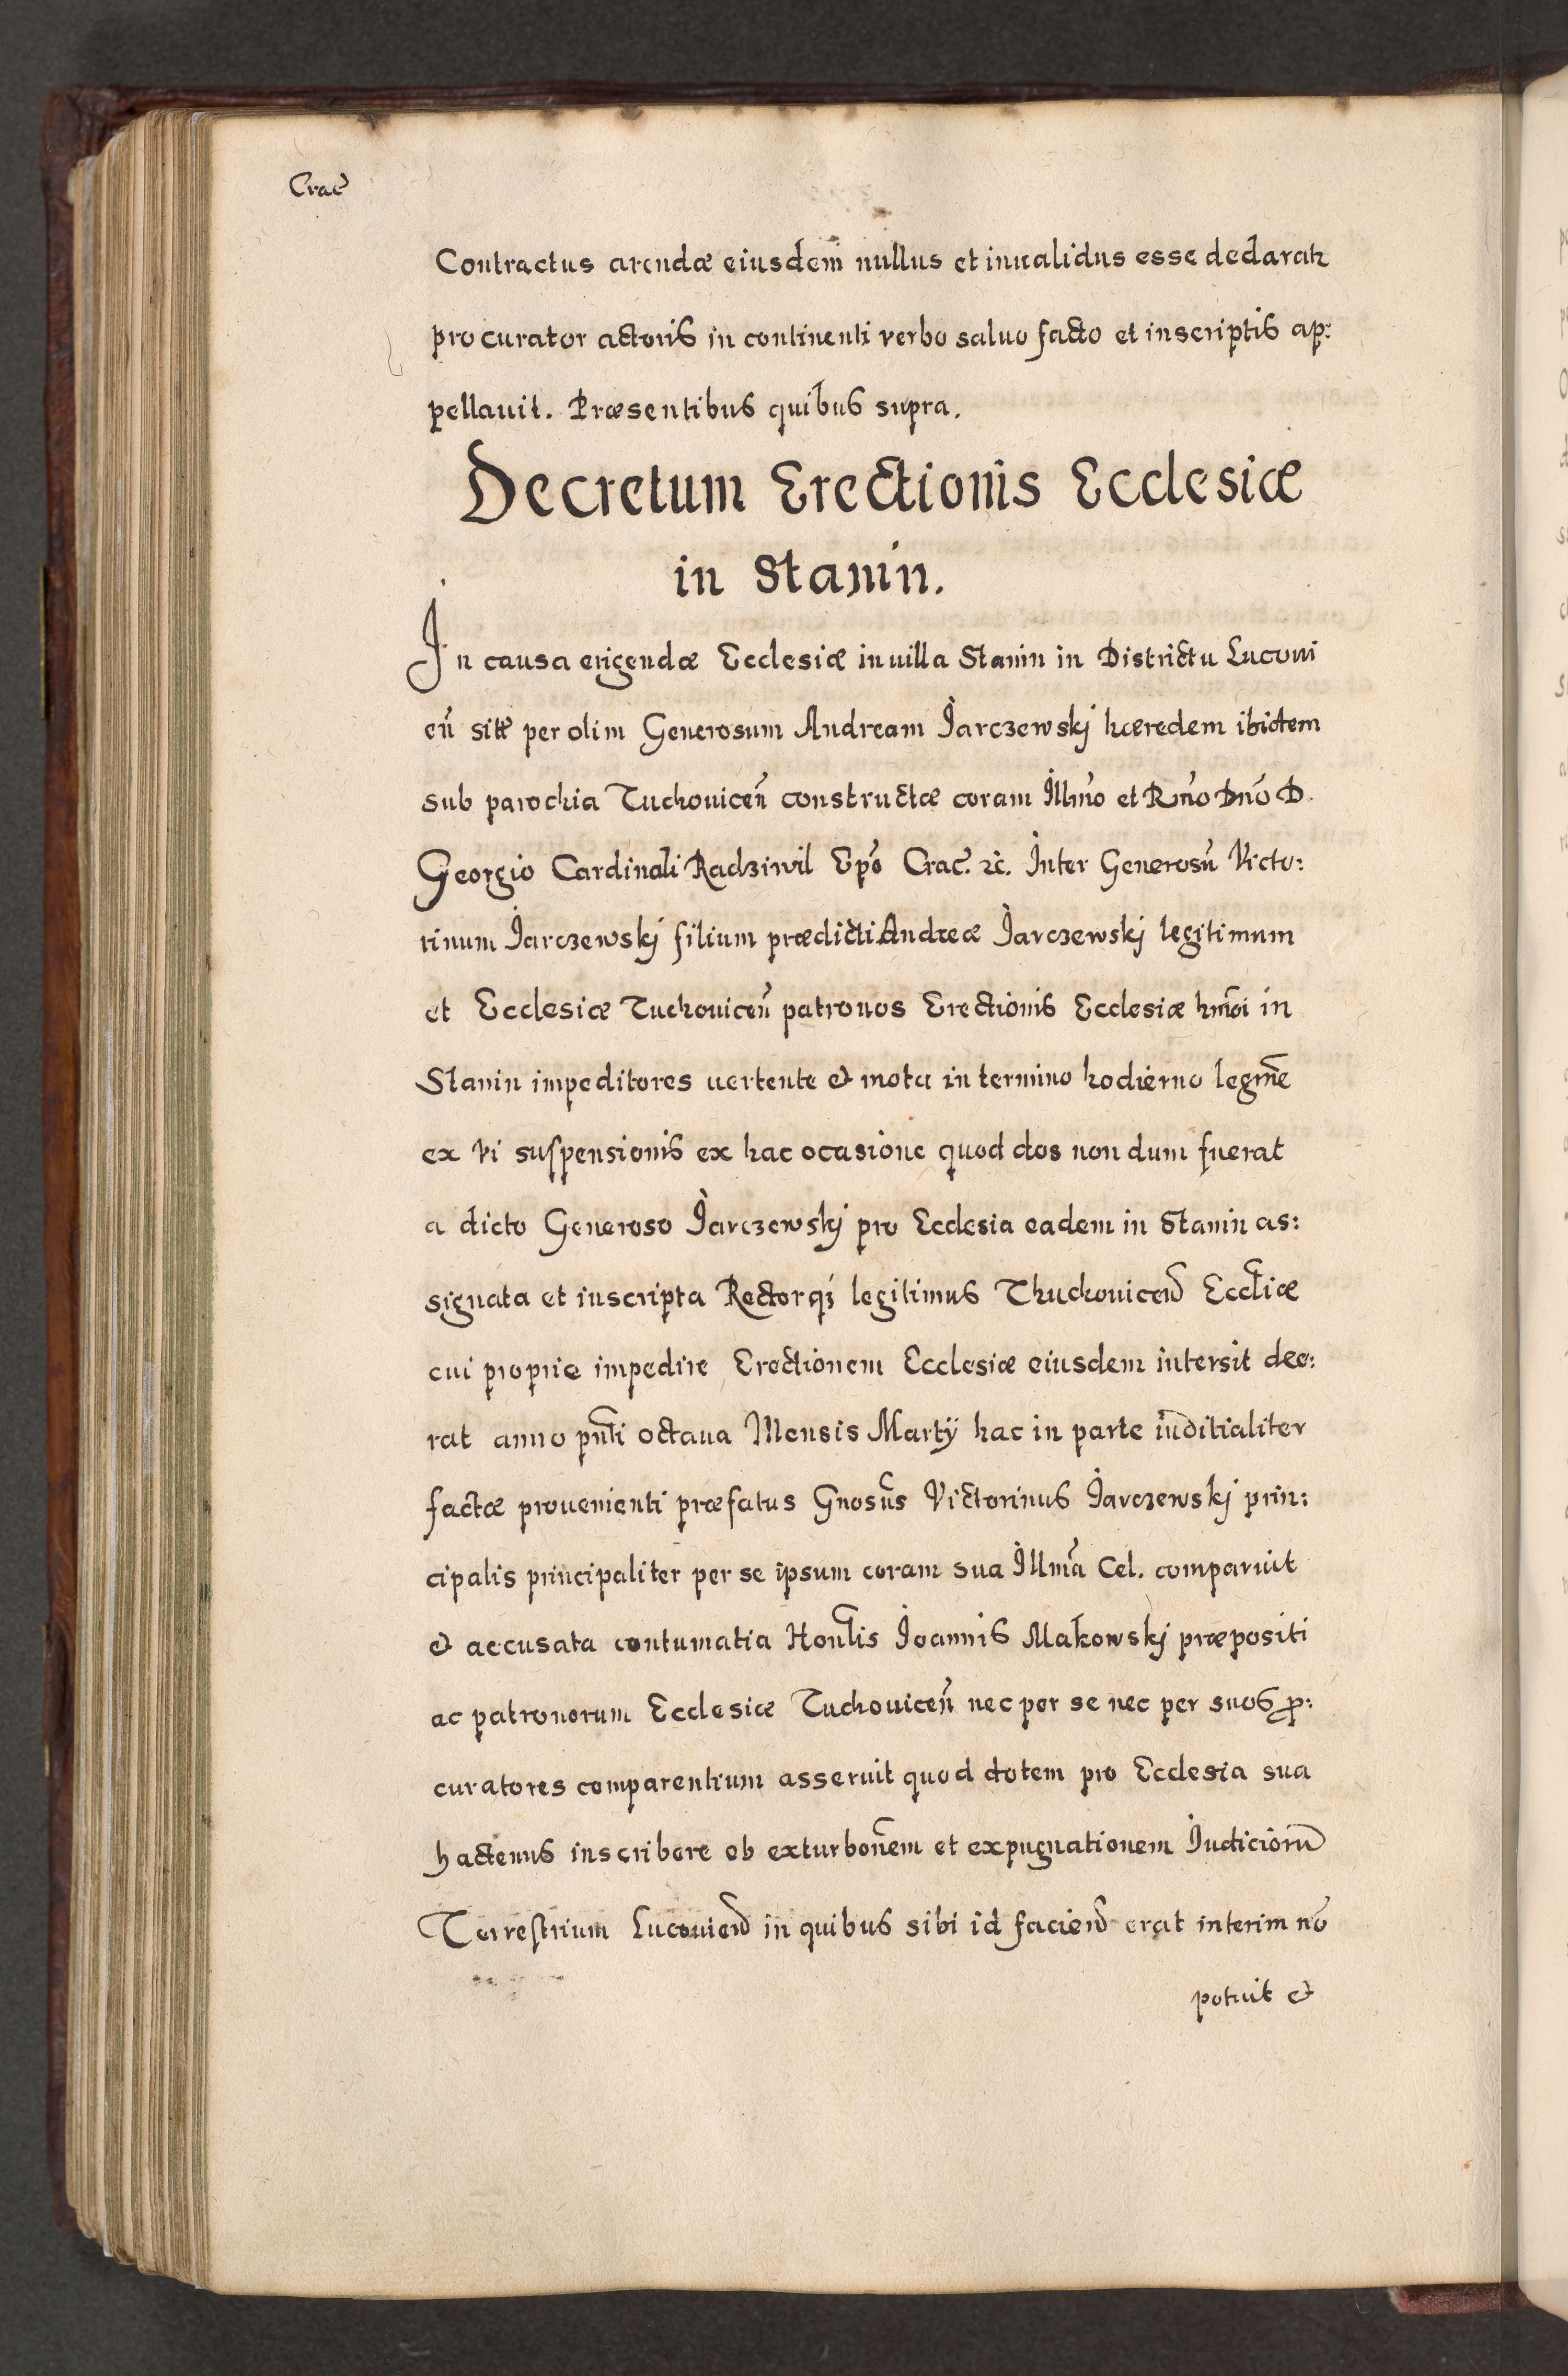 Crac̃
Contractus arendæ eiusdem nullus et inualidus esse declaratz
procurator actoris in continenti verbo saluo facto et in scriptis ap:
pellauit. Præsentibus quibus supra.
Decretum Erectionis Ecclesiæ
in Stanin.
In causa erigendæ Ecclesiæ in uilla Stanin in Districtu Luconi
eñ sitæ per olim Generosum Andream Jarczewskj hæredem ibidem
sub parochia Tuchouiceñ constructæ coram Illmo et Rmo Dno D.
Georgio Cardinali Radziwil Epõ Crac. &c. Inter Generosũ Victo:
rinum Jarczewskj filium prædicti Andreæ Jarczewskj legitimum
et Ecclesiæ Tuchouiceñ patronos Erectionis Ecclesiæ hmõi in
Stanin impeditores uertente & mota in termino hodierno legmẽ
ex vi suspensionis ex hac ocasione quod dos non dum fuerat
a dicto Generoso Jarczewskj pro Ecclesia eadem in Stanin as:
signata et inscripta Rectorq; legitimus Thuchouiceñ Eccliæ
cui proprie impedire Erectionem Ecclesiæ eiusdem intersit dee:
rat anno pñti octaua Mensis Martÿ hac in parte iuditialiter
factæ prouenienti præfatus Gnosus Victorinus Jarczewskj prin:
cipalis principaliter per se ipsum coram sua Illma Cel. comparuit
& accusata contumatia Honlis Joannis Makowskj præpositi
ac patronorum Ecclesiæ Tuchouiceñ nec per se nec per suos p:
curatores comparentium asseruit quod dotem pro Ecclesia sua
hactenus inscribere ob exturbonem et expugnationem Judiciorũ
Terrestrium Lucouieñ in quibus sibi id facieñ erat interim nõ
potuit &